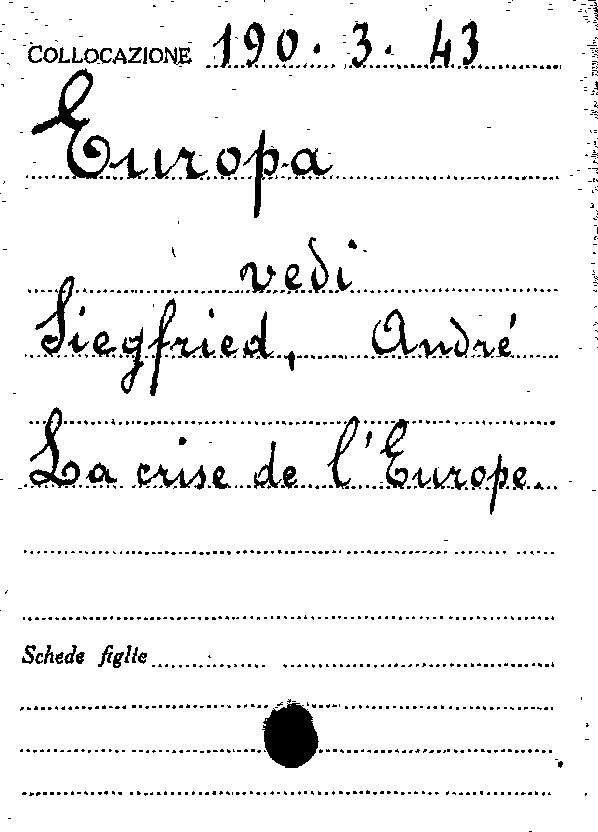 COLLOCAZIONE 190. 3. 43
Europa
vedi
Siegfried, André
La crise de l'Europe.
Schede figlie